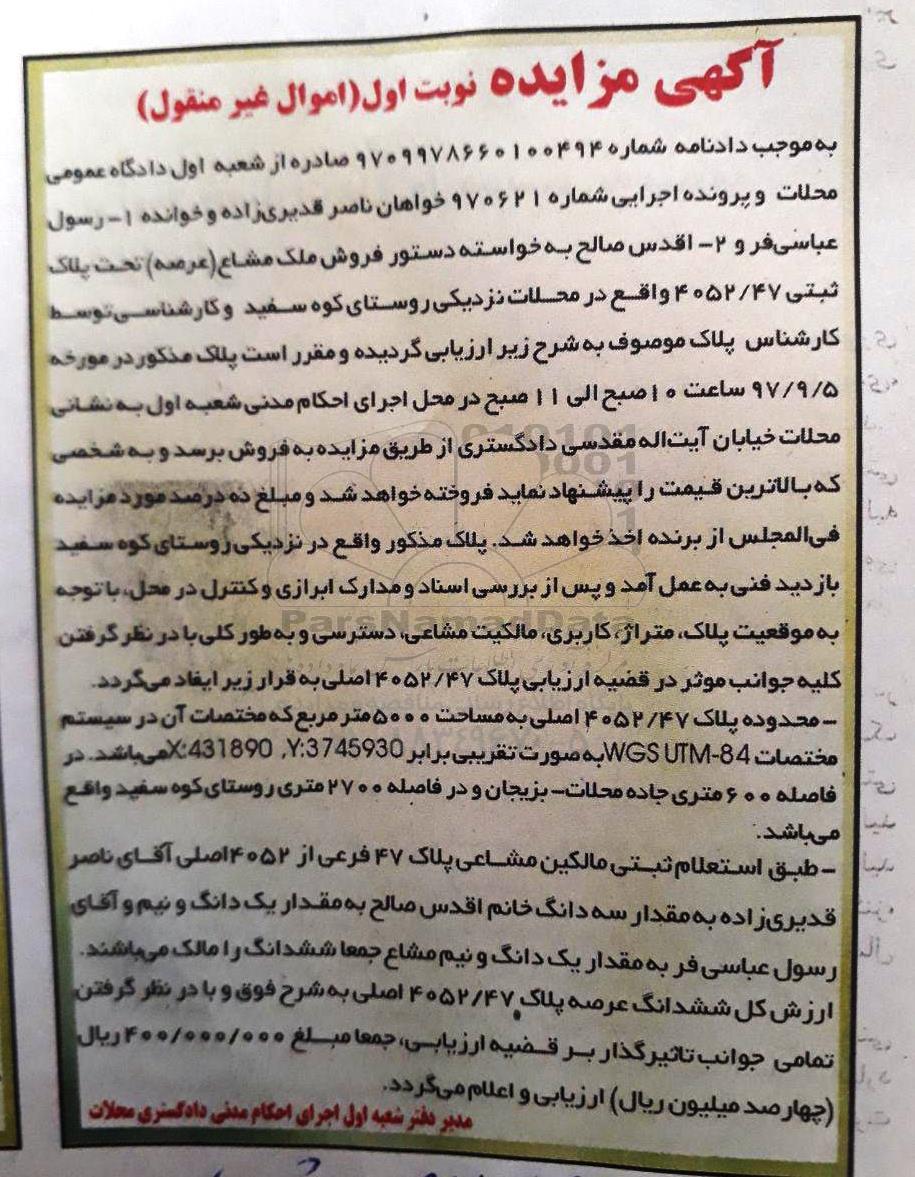 آگهی مزایده نوبت اول(اموال غیر منقول)
به موجب دادنامه شماره ۹۷۰۹۹۷۸۶۶۰۱۰۰۴۹۴ صادره از شعبه اول دادگاه عمومی
محلات و پرونده اجرایی شماره ۹۷۰۶۲۱ خواهان ناصر قدیری‌زاده و خوانده ۱- رسول
عباسی‌فر و ۲- اقدس صالح به خواسته دستور فروش ملک مشاع(عرصه) تحت پلاک
ثبتی ۴۰۵۲/۴۷ واقع در محلات نزدیکی روستای کوه سفید و کارشناسی توسط
کارشناس پلاک موصوف به شرح زیر ارزیابی گردیده و مقرر است پلاک مذکور در مورخه
۹۷/۹/۵ ساعت ۱۰ صبح الی ۱۱ صبح در محل اجرای احکام مدنی شعبه اول به نشانی
محلات خیابان آیت‌اله مقدسی دادگستری از طریق مزایده به فروش برسد و به شخصی
که بالاترین قیمت را پیشنهاد نماید فروخته خواهد شد و مبلغ ده درصد مورد مزایده
فی‌المجلس از برنده اخذ خواهد شد. پلاک مذکور واقع در نزدیکی روستای کوه سفید
بازدید فنی به عمل آمد و پس از بررسی اسناد و مدارک ابرازی و کنترل در محل، با توجه
به موقعیت پلاک، متراژ، کاربری، مالکیت مشاعی، دسترسی و به طور کلی با در نظر گرفتن
کلیه جوانب موثر در قضیه ارزیابی پلاک ۴۰۵۲/۴۷ اصلی به قرار زیر ایفاد می‌گردد.
- محدوده پلاک ۴۰۵۲/۴۷ اصلی به مساحت ۵۰۰۰ متر مربع که مختصات آن در سیستم
مختصات WGS UTM-84 به صورت تقریبی برابر X:431890 ,Y:3745930 می‌باشد. در
فاصله ۶۰۰ متری جاده محلات- بزیجان و در فاصله ۲۷۰۰ متری روستای کوه سفید واقع
می‌باشد.
- طبق استعلام ثبتی مالکین مشاعی پلاک ۴۷ فرعی از ۴۰۵۲ اصلی آقای ناصر
قدیری‌زاده به مقدار سه دانگ خانم اقدس صالح به مقدار یک دانگ و نیم و آقای
رسول عباسی فر به مقدار یک دانگ و نیم مشاع جمعا ششدانگ را مالک می‌باشند.
ارزش کل ششدانگ عرصه پلاک ۴۰۵۲/۴۷ اصلی به شرح فوق و با در نظر گرفتن
تمامی جوانب تاثیرگذار بر قضیه ارزیابی، جمعا مبلغ ۴۰۰/۰۰۰/۰۰۰ ریال
(چهارصد میلیون ریال) ارزیابی و اعلام می‌گردد.
مدیر دفتر شعبه اول اجرای احکام مدنی دادگستری محلات